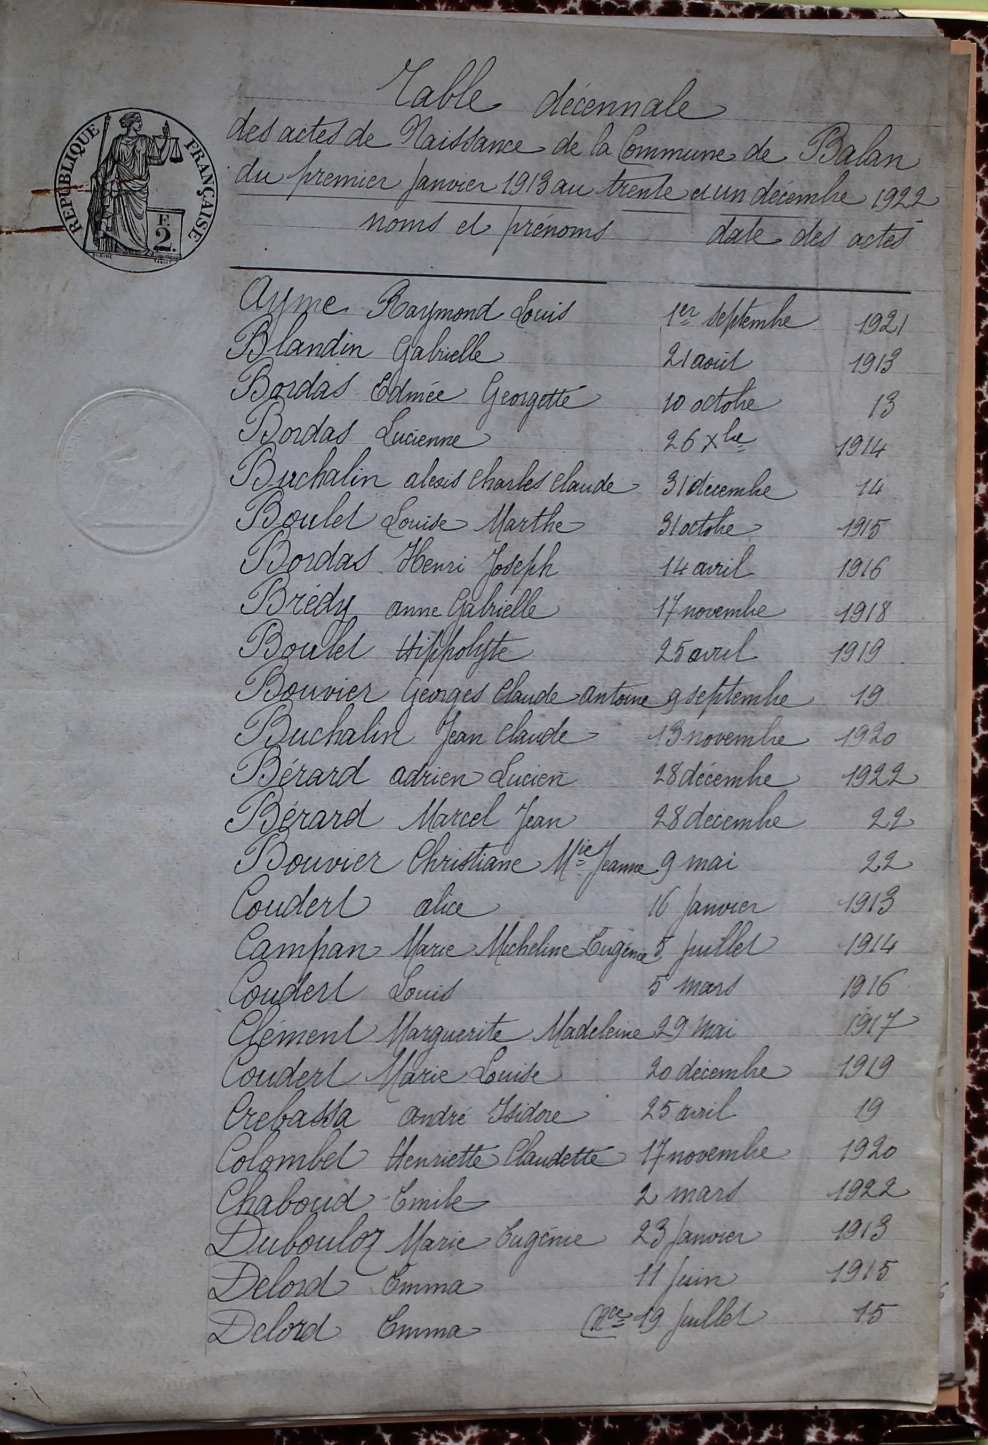 RÉPUBLIQUE FRANÇAISE
F
2.
Table décennale
des actes de Naissance de la Commune de Balan
du premier Janvier 1913 au trente et un décembre 1922
noms et prénoms date des actes
Ayme Raymond Louis 1er septembre 1921
Blandin Gabrielle 21 août 1913
Bordas Edmée Georgette 10 octobre 13
Bordas Lucienne 26 xbre 1914
Buchalin alexis Charles Claude 31 décembre 14
Boulet Louise Marthe 31 octobre 1915
Bordas Henri Joseph 14 avril 1916
Brédy anne Gabrielle 17 novembre 1918
Boulet Hippolyte 25 avril 1919
Bouvier Georges Claude antoine 9 septembre 19
Buchalin Jean Claude 13 novembre 1920
Bérard adrien Lucien 28 décembre 1922
Bérard Marcel Jean 28 décembre 22
Bouvier Christiane Mie Jeanne 9 mai 22
Coudert alice 16 Janvier 1913
Campan Marie Micheline Eugénie 5 Juillet 1914
Coudert Louis 5 mars 1916
Clément Marguerite Madeleine 29 mai 1917
Coudert Marie Louise 20 décembre 1919
Crebassa andré Isidore 25 avril 19
Colombet Henriette Claudette 17 novembre 1920
Chaboud Emile 2 mars 1922
Dubouloz Marie Eugénie 23 Janvier 1913
Delord Emma 11 Juin 1915
Delord Emma (Rce 19 Juillet 15